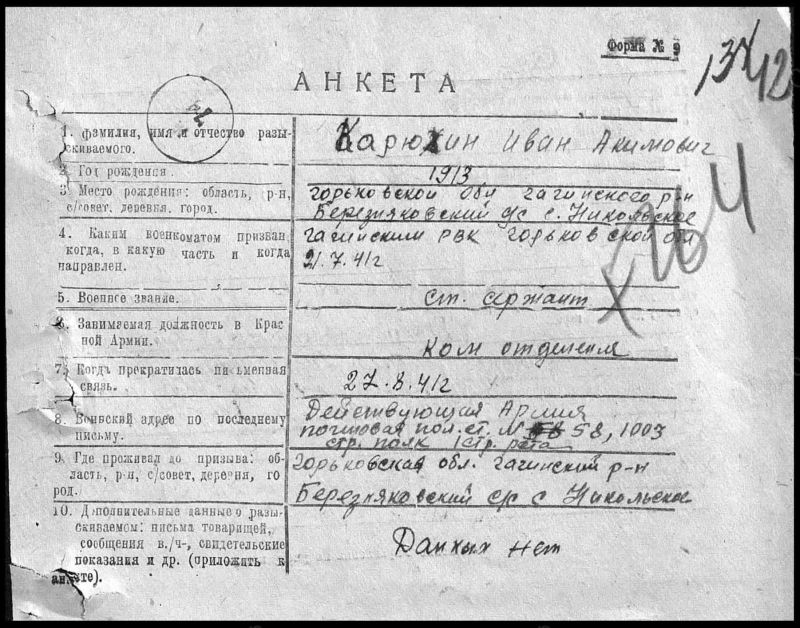 Форма № 9
13X42
АНКЕТА
1. фамилия, имя и отчество разы-
скиваемого.
Карюхин Иван Акимович
2. Год рождения.
1913
3. Место рождения: область, р-н,
с/совет, деревня, город.
горьковской обл гагинского р-н
Березняковский с/с с. Никольское
4. Каким военкоматом призван
когда, в какую часть и когда
направлен.
гагинским РВК горьковской обл
21.7.41г
5. Военное звание.
ст. сержант
6. Занимаемая должность в Крас
ной Армии.
Ком отделения
7. Когда прекратилась письменная
связь.
27.8.41г
8. Воинский адрес по последнему
письму.
Действующая Армия
почтовая пол. ст. N 58, 1003
стр. полк 1 стр. рота
9. Где проживал до призыва: об-
ласть, р-н, с/совет, деревня, го
род.
горьковская обл. гагинский р-н
Березняковский с/с с Никольское
10. Дополнительные данные о разы-
скиваемом: письма товарищей,
сообщения в./ч-, свидетельские
показания и др. (приложить к
анкете).
Данных нет